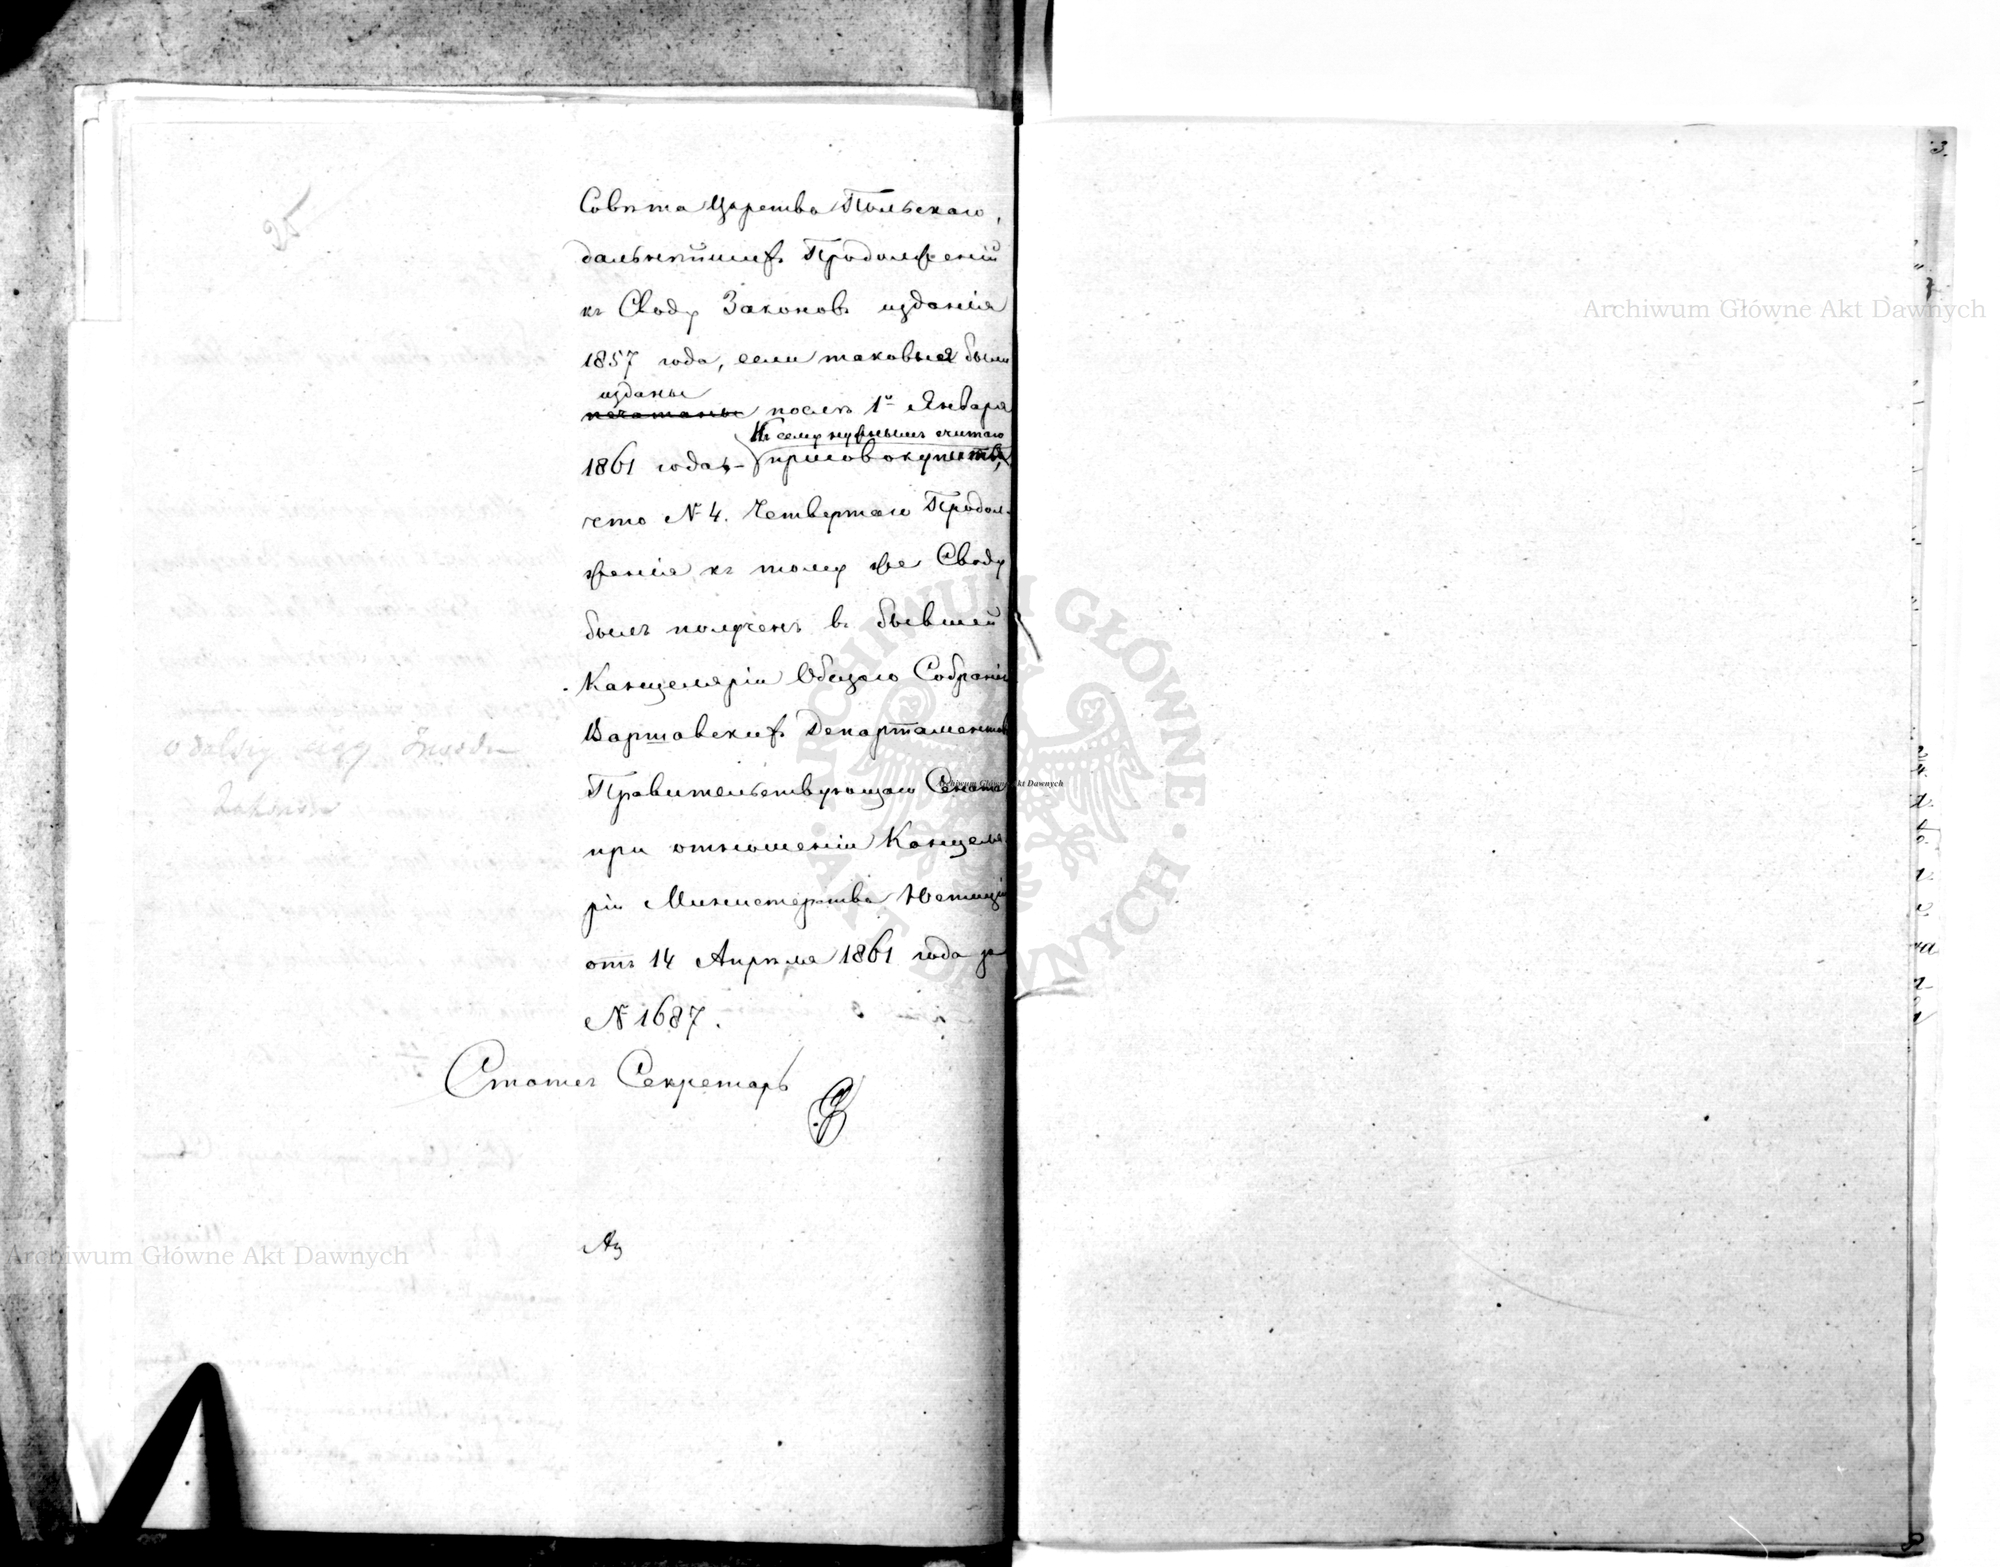 25
Совѣта Царства Польскаго,
дальнѣйшихъ Продолженій
къ Своду Законовъ изданія
1857 года, если таковыя были
изданы
печатаны послѣ 1го Января
Къ сему нужнымъ считаю
1861 года присовокупить,
что № 4. Четвертаго Продол-
женія къ тому же Своду
былъ полученъ въ бывшей
Канцеляріи Общаго Собранія
Варшавскихъ Департаментовъ
Правительствующаго Сената
при отношеніи Канцеля-
ріи Министерства Юстиціи
отъ 14 Апрѣля 1861 года за
№ 1687.
Статсъ Секретарь
Archiwum Główne Akt Dawnych
Archiwum Główne Akt Dawnych
Archiwum Główne Akt Dawnych
ARCHIWUM GŁÓWNE AKT DAWNYCH